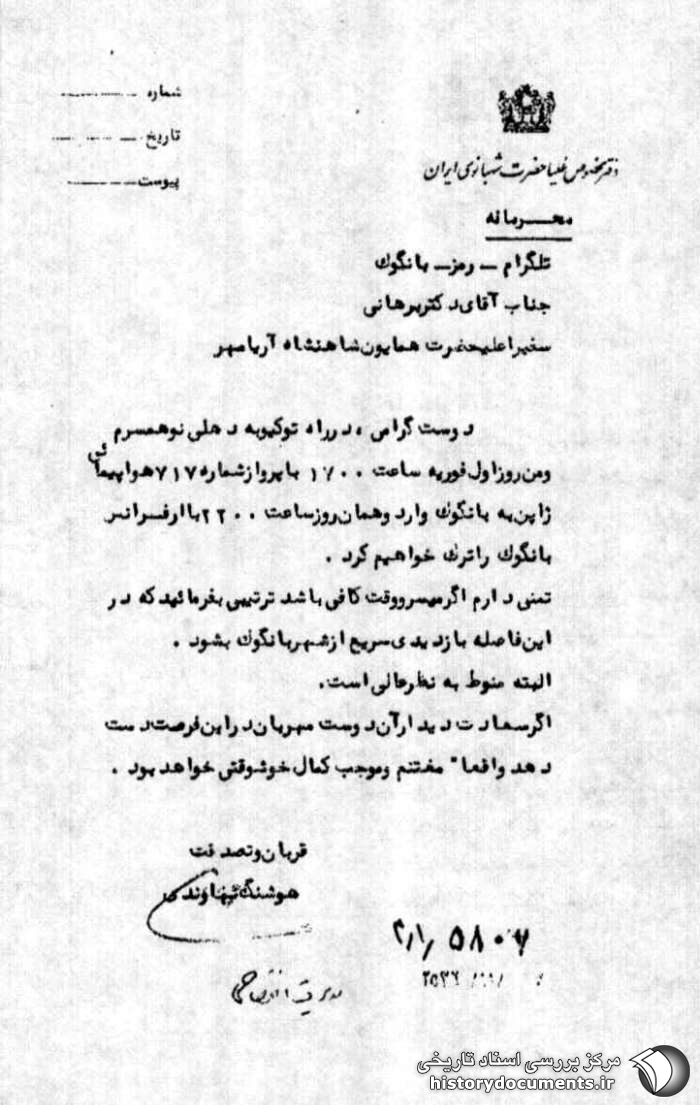 شماره
تاریخ
پیوست
دفتر مخصوص علیاحضرت شهبانوی ایران
محرمانه
تلگرام - رمز - بانگوک
جناب آقای دکتر برهانی
سفیر اعلیحضرت همایون شاهنشاه آریامهر
دوست گرامی ، در راه توکیو به دهلی نو همسرم
و من روز اول فوریه ساعت با پرواز شماره ۷۱۷ هواپیمائی
ژاپن به بانگوک وارد و همان روز ساعت ۲۲۰۰ با ارفرانس
بانگوک را ترک خواهیم کرد .
تمنی دارم اگر میسر و وقت کافی باشد ترتیبی بفرمائید که در
این فاصله بازدیدی سریع از شهر بانگوک بشود .
البته منوط به نظر عالی است.
اگر سعادت دیدار آن دوست مهربان در این فرصت دست
دهد واقعا" مغتنم و موجب کمال خوشوقتی خواهد بود .
قربان و تصدقت
هوشنگ نهاوندی
۲/۱/۵۸۰۷
مرکز بررسی اسناد تاریخی
historydocuments.ir